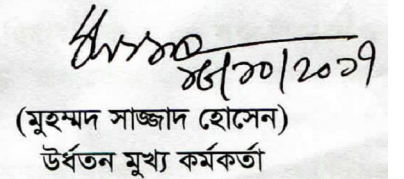 ২৫/১০/২০১৭
(মুহম্মদ সাজ্জাদ হোসেন)
উর্ধতন মুখ্য কর্মকর্তা